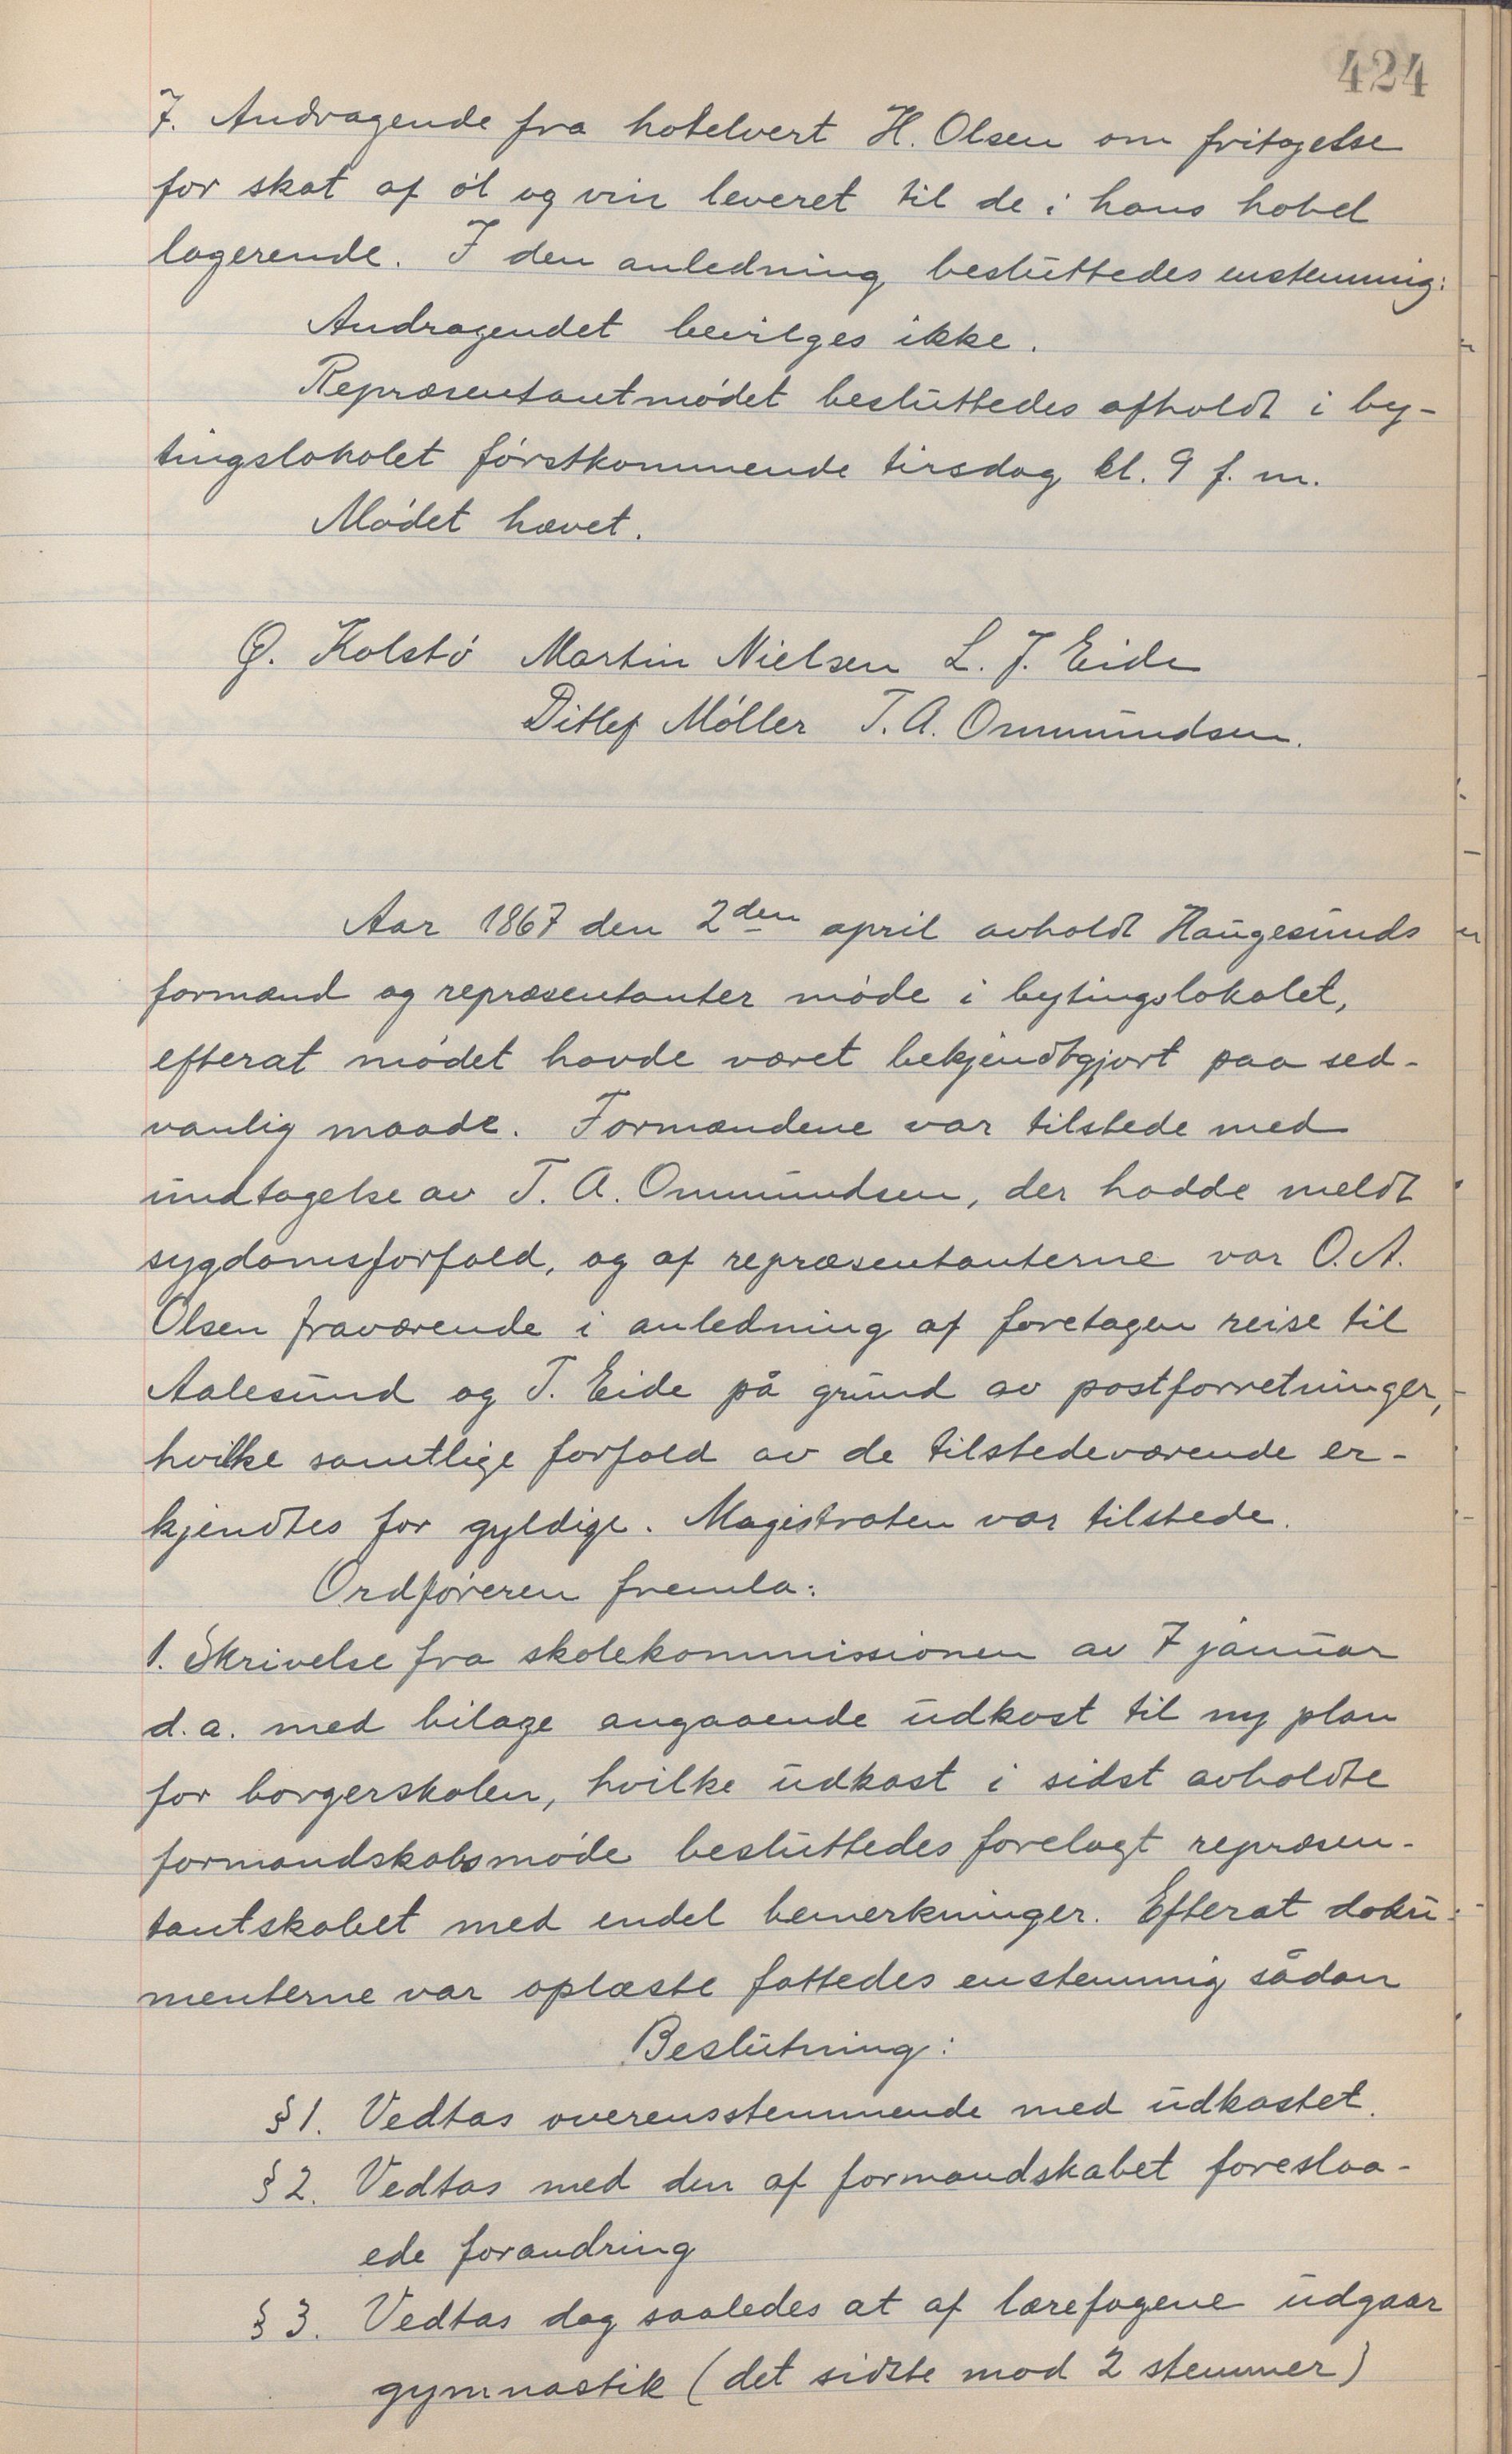 424
7. Andragende fra hotelvert H. Olsen om fritagelse
for skat af øl og vin leveret til de i hans hotel
logerende. I den anledning besluttedes enstemmig:
Andragendet bevilges ikke.
Repræsentantmødet besluttedes afholdt i by-
tingslokalet førstkommende tirsdag kl. 9 f. m.
Mødet hævet.
Q. Kolstø Martin Nielsen L. J. Eide
Ditlef Møller T. A. Ommundsen.
Aar 1867 den 2den april avholdt Haugesunds
formænd og repræsentanter møde i bytingslokalet,
efterat mødet havde været bekjendtgjort paa sed-
vanlig maade. Formændene var tilstede med
undtagelse av T. A. Ommundsen, der hadde meldt
sygdomsforfald, og af repræsentanterne var O. A.
Olsen fraværende i anledning af foretagen reise til
Aalesund og T. Eide på grund av postforretninger,
hvilke samtlige forfald av de tilstedeværende er-
kjendtes for gyldige. Magistraten var tilstede.
Ordføreren fremla:
1. Skrivelse fra skolekommissionen av 7 januar
d. a. med bilage angaaende udkast til ny plan
for borgerskolen, hvilke udkast i sidst avholdte
formandskabsmøde besluttedes forelagt repræsen-
tantskabet med endel bemerkninger. Efterat doku-
menterne var oplæste fattedes enstemmig sådan
Beslutning:
§ 1. Vedtas overensstemmende med udkastet.
§ 2. Vedtas med den af formandskabet foreslaa-
ede forandring
§ 3. Vedtas dog saaledes at af lærefagene udgaar
gymnastik (det sidste mod 2 stemmer)